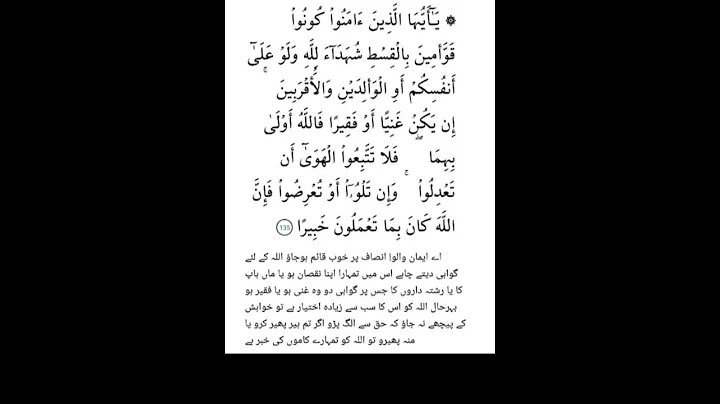 ۞ يَـٰٓأَيُّهَا الَّذِينَ ءَامَنُوا۟ كُونُوا۟
قَوَّٰمِينَ بِالْقِسْطِ شُهَدَآءَ لِلَّهِ وَلَوْ عَلَىٰٓ
أَنفُسِكُمْ أَوِ الْوَٰلِدَيْنِ وَالْأَقْرَبِينَ ۚ
إِن يَكُنْ غَنِيًّا أَوْ فَقِيرًا فَاللَّهُ أَوْلَىٰ
بِهِمَا ۖ فَلَا تَتَّبِعُوا۟ الْهَوَىٰٓ أَن
تَعْدِلُوا۟ ۚ وَإِن تَلْوُۥٓا۟ أَوْ تُعْرِضُوا۟ فَإِنَّ
اللَّهَ كَانَ بِمَا تَعْمَلُونَ خَبِيرًا 135
اے ایمان والو! انصاف پر خوب قائم ہوجاؤ اللہ کے لئے
گواہی دیتے چاہے اس میں تمہارا اپنا نقصان ہو یا ماں باپ
کا یا رشتہ داروں کا جس پر گواہی دو وہ غنی ہو یا فقیر ہو
بہرحال اللہ کو اس کا سب سے زیادہ اختیار ہے تو خواہش
کے پیچھے نہ جاؤ کہ حق سے الگ پڑو اگر تم ہیر پھیر کرو یا
منہ پھیرو تو اللہ کو تمہارے کاموں کی خبر ہے